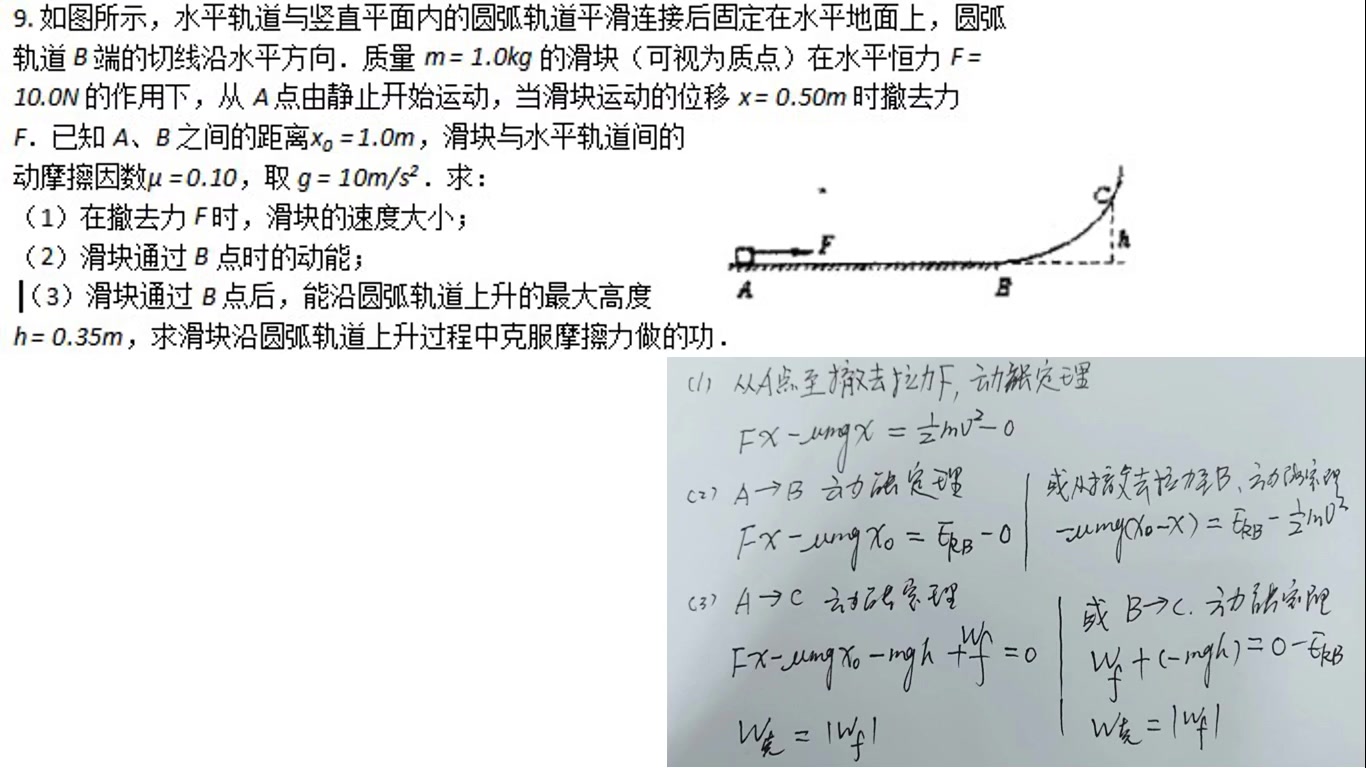 9. 如图所示，水平轨道与竖直平面内的圆弧轨道平滑连接后固定在水平地面上，圆弧
轨道 B 端的切线沿水平方向．质量 m = 1.0kg 的滑块（可视为质点）在水平恒力 F =
10.0N 的作用下，从 A 点由静止开始运动，当滑块运动的位移 x = 0.50m 时撤去力
F．已知 A、B 之间的距离x₀ = 1.0m，滑块与水平轨道间的
动摩擦因数μ = 0.10，取 g = 10m/s²．求：
（1）在撤去力 F 时，滑块的速度大小；
（2）滑块通过 B 点时的动能；
（3）滑块通过 B 点后，能沿圆弧轨道上升的最大高度
h = 0.35m，求滑块沿圆弧轨道上升过程中克服摩擦力做的功．
C
F
h
A
B
(1) 从A点至撤去拉力F, 动能定理
Fx - μmgx = ½mv² - 0
(2) A→B 动能定理
Fx - μmgx₀ = E_kB - 0
或从撤去拉力至B、动能定理
-μmg(x₀-x) = E_kB - ½mv²
(3) A→C 动能定理
Fx - μmgx₀ - mgh + W_f = 0
W克 = |W_f|
或 B→C. 动能定理
W_f + (-mgh) = 0 - E_kB
W克 = |W_f|